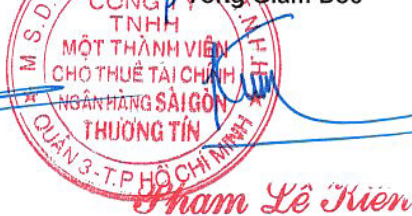 Tổng Giám Đốc
CÔNG TY
TNHH
MỘT THÀNH VIÊN
CHO THUÊ TÀI CHÍNH
NGÂN HÀNG SÀI GÒN
THƯƠNG TÍN
M.S.D.
T.N.H.H
QUẬN 3 - T.P HỒ CHÍ MINH
Phạm Lê Kiên